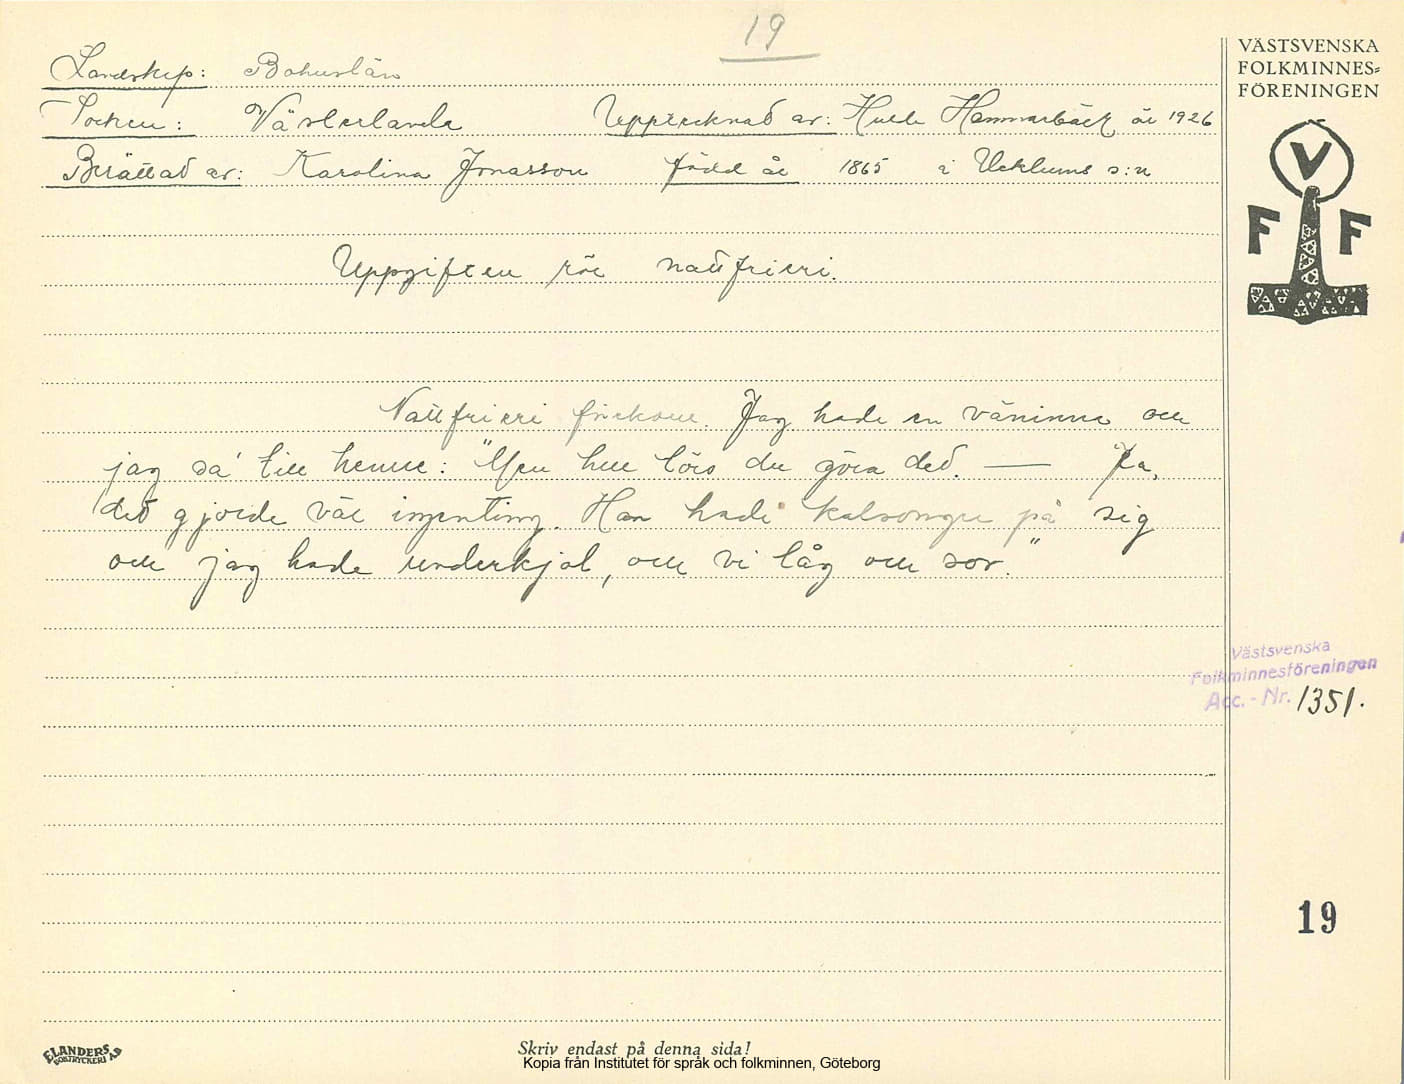 19
Landskap: Bohuslän
Socken: Västerlanda Upptecknad av: Huld Hammarbäck år 1926
Berättad av: Karolina Jonasson född år 1865 i Ucklums s:n
Uppgiften rör nattfrieri.
Nattfrieri förekom. Jag hade en väninna och
jag sa' till henne: "Men hur törs du göra det. — Ja,
det gjorde väl ingenting. Han hade kalsonger på sig
och jag hade underkjol, och vi låg och sov."
VÄSTSVENSKA
FOLKMINNES=
FÖRENINGEN
V
F F
Västsvenska
Folkminnesföreningen
Acc. - Nr. 1351.
19
ELANDERS
BOKTRYCKERI AB
Skriv endast på denna sida!
Kopia från Institutet för språk och folkminnen, Göteborg